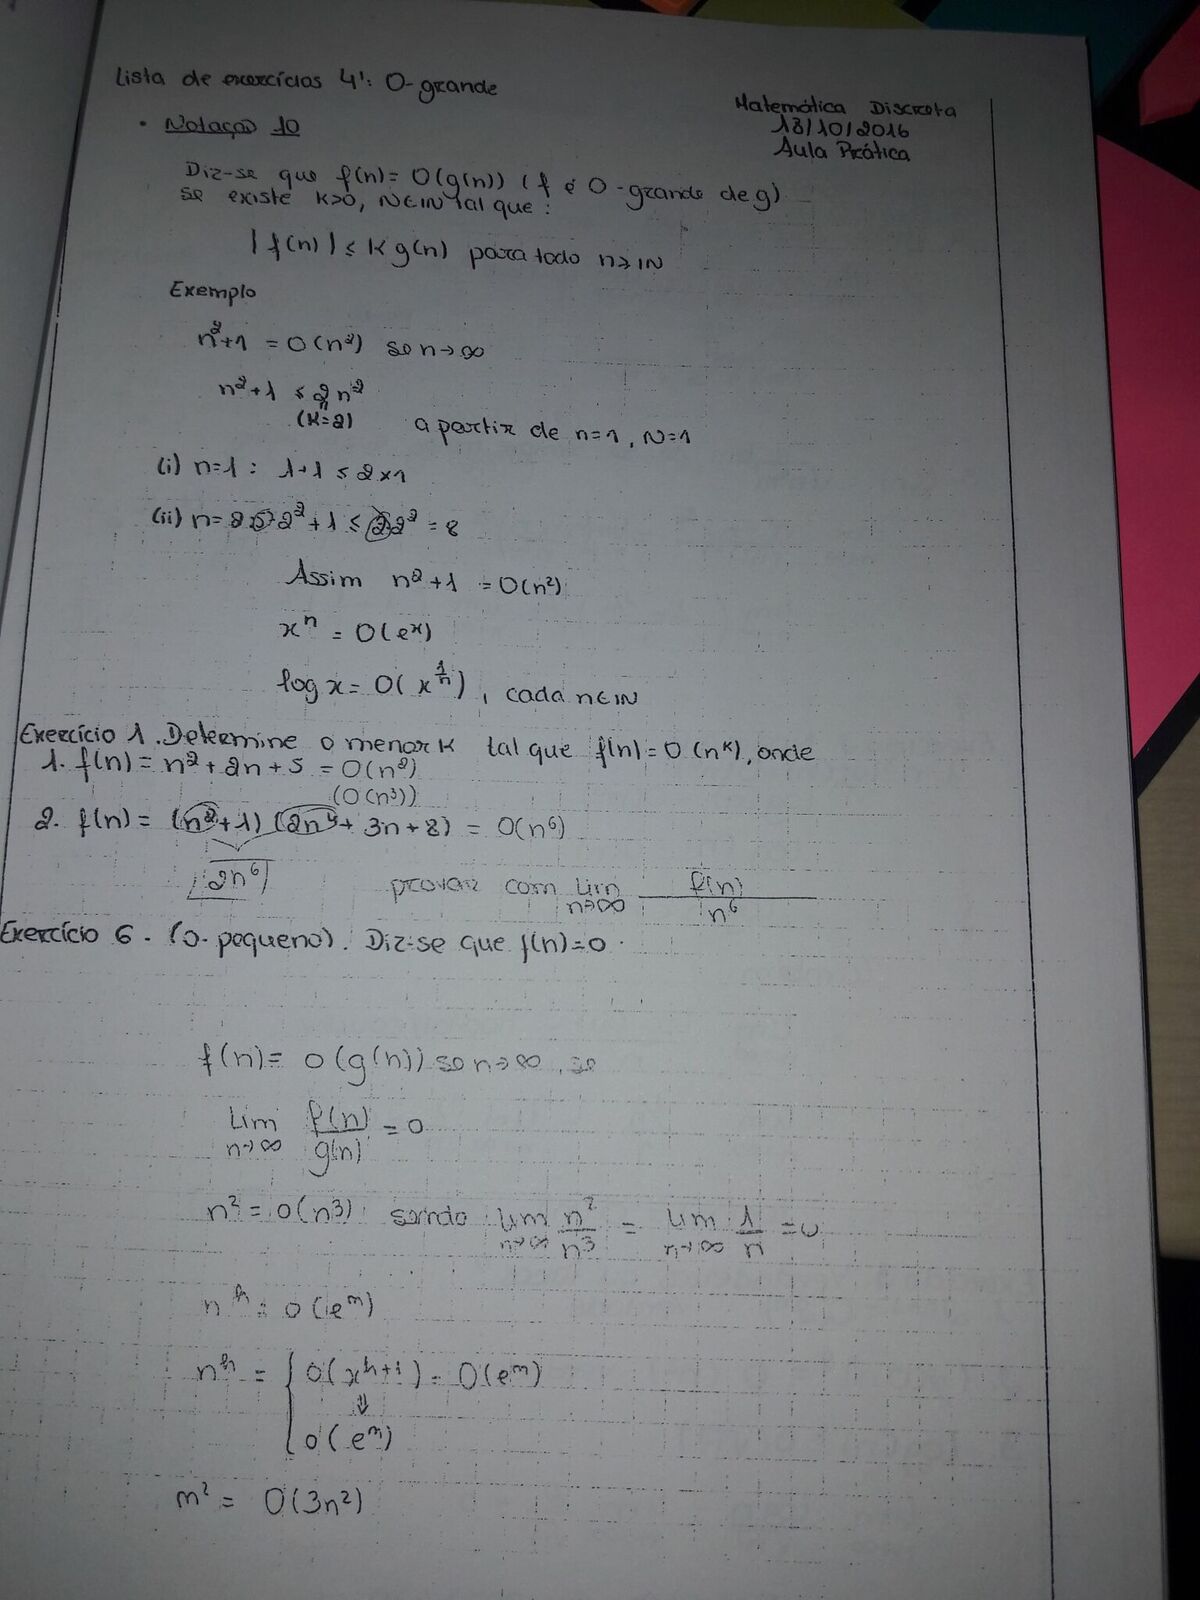 Lista de exercícios 4': O-grande
Matemática Discreta
13/10/2016
Aula Prática
• Notação 10
Diz-se que f(n)= O(g(n)) (f é O-grande de g)
se existe K>0, N∈ℕ tal que:
|f(n)| ≤ K g(n) para todo n≥ℕ
Exemplo
n²+1 = O(n²) se n→∞
n²+1 ≤ 2n²
(K=2) a partir de n=1, N=1
(i) n=1: 1+1 ≤ 2×1
(ii) n=2 2²+1 ≤ 2 2² = 8
Assim n²+1 = O(n²)
xⁿ = O(eˣ)
log x = O(x^(1/n)), cada n∈ℕ
Exercício 1. Determine o menor K tal que f(n)=O(nᵏ), onde
1. f(n) = n²+2n+5 = O(n²)
(O(n³))
2. f(n) = (n²+1)(2n⁴+3n+8) = O(n⁶)
2n⁶ provar com lim n→∞ f(n)/n⁶
Exercício 6. (o-pequeno). Diz-se que f(n)=o
f(n)= o(g(n)) se n→∞, se
lim n→∞ f(n)/g(n) = 0
n² = o(n³) sendo lim n→∞ n²/n³ = lim n→∞ 1/n = 0
nʰ = o(eᵐ)
nʰ = { O(xʰ⁺¹) = O(eᵐ)
⇓
o(eᵐ)
m² = O(3n²)